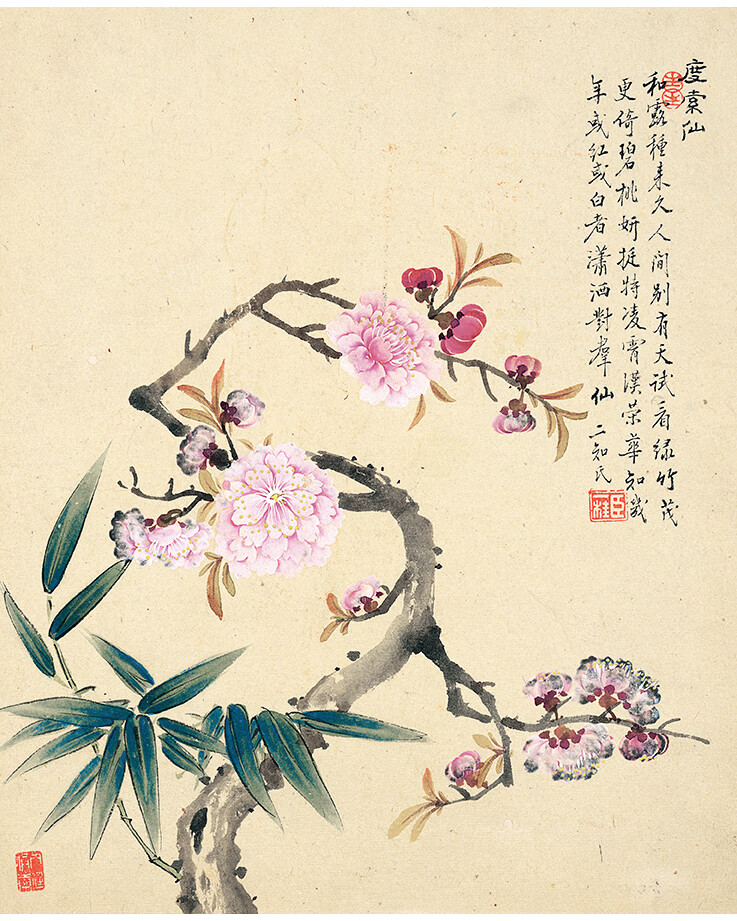 度索仙
和露種来久人間别有天試看緑竹茂
更倚碧桃妍挺特凌霄漢荣華知幾
年或紅或白者瀟洒對羣仙 二知氏